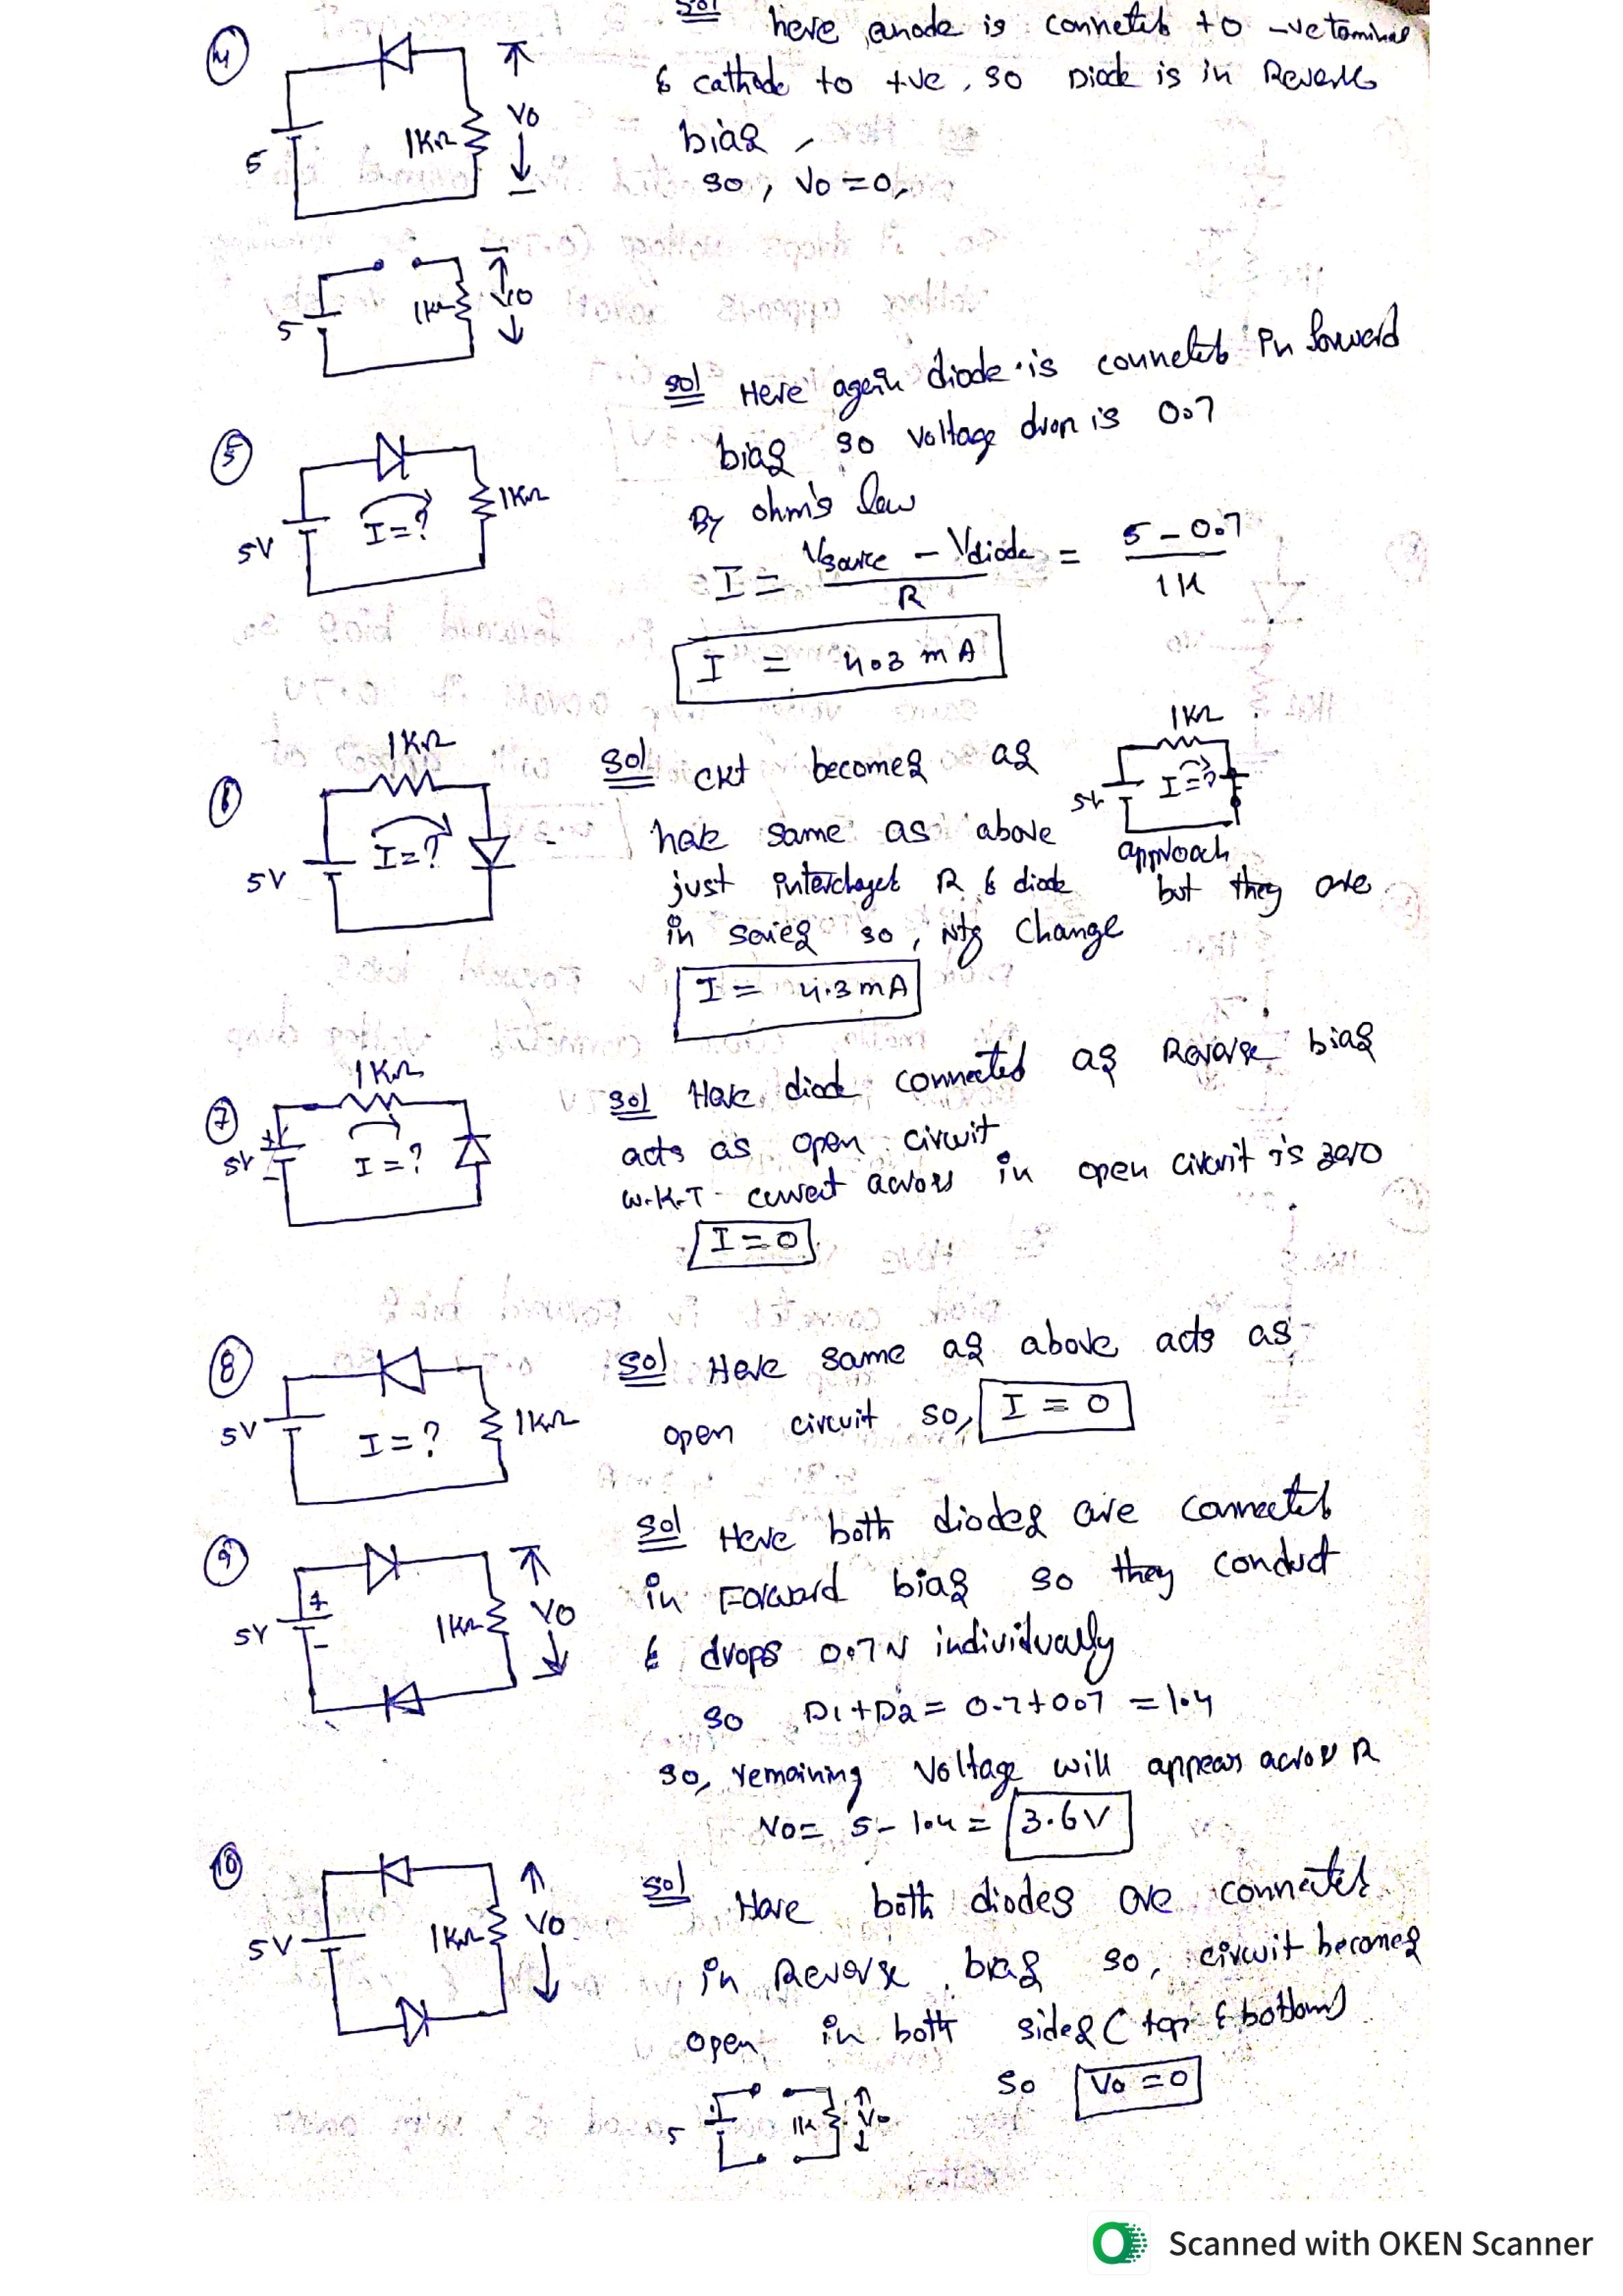 ④
5
1KΩ
Vo
sol here anode is connected to -ve terminal
& cathode to +ve, so Diode is in Reverse
bias,
so, Vo = 0,
5
1KΩ
Vo
⑤
5V
I=?
1KΩ
sol Here again diode is connected in forward
bias so voltage drop is 0.7
By ohm's law
I = Vsource - Vdiode / R = 5 - 0.7 / 1K
I = 4.3 mA
⑥
1KΩ
5V
I=?
sol ckt becomes as
1KΩ
5V
I=?
here same as above approach
just interchaget R & diode but they are
in series so, Ntg change
I = 4.3 mA
⑦
1KΩ
5V
+
-
I=?
sol Here diode connected as Reverse bias
acts as open circuit
W.K.T - current across in open circuit is zero
I = 0
⑧
5V
I=?
1KΩ
sol Here same as above acts as
open circuit so, I = 0
⑨
5V
+
-
1KΩ
Vo
sol Here both diodes are connected
in Forward bias so they conduct
& drops 0.7V individually
so D1+D2 = 0.7+0.7 = 1.4
so, remaining voltage will appears across R
Vo = 5 - 1.4 = 3.6V
⑩
5V
1KΩ
Vo
sol Here both diodes are connected
in Reverse bias so, circuit becomes
open in both sides (top & bottom)
so Vo = 0
5
1K
Vo
Scanned with OKEN Scanner